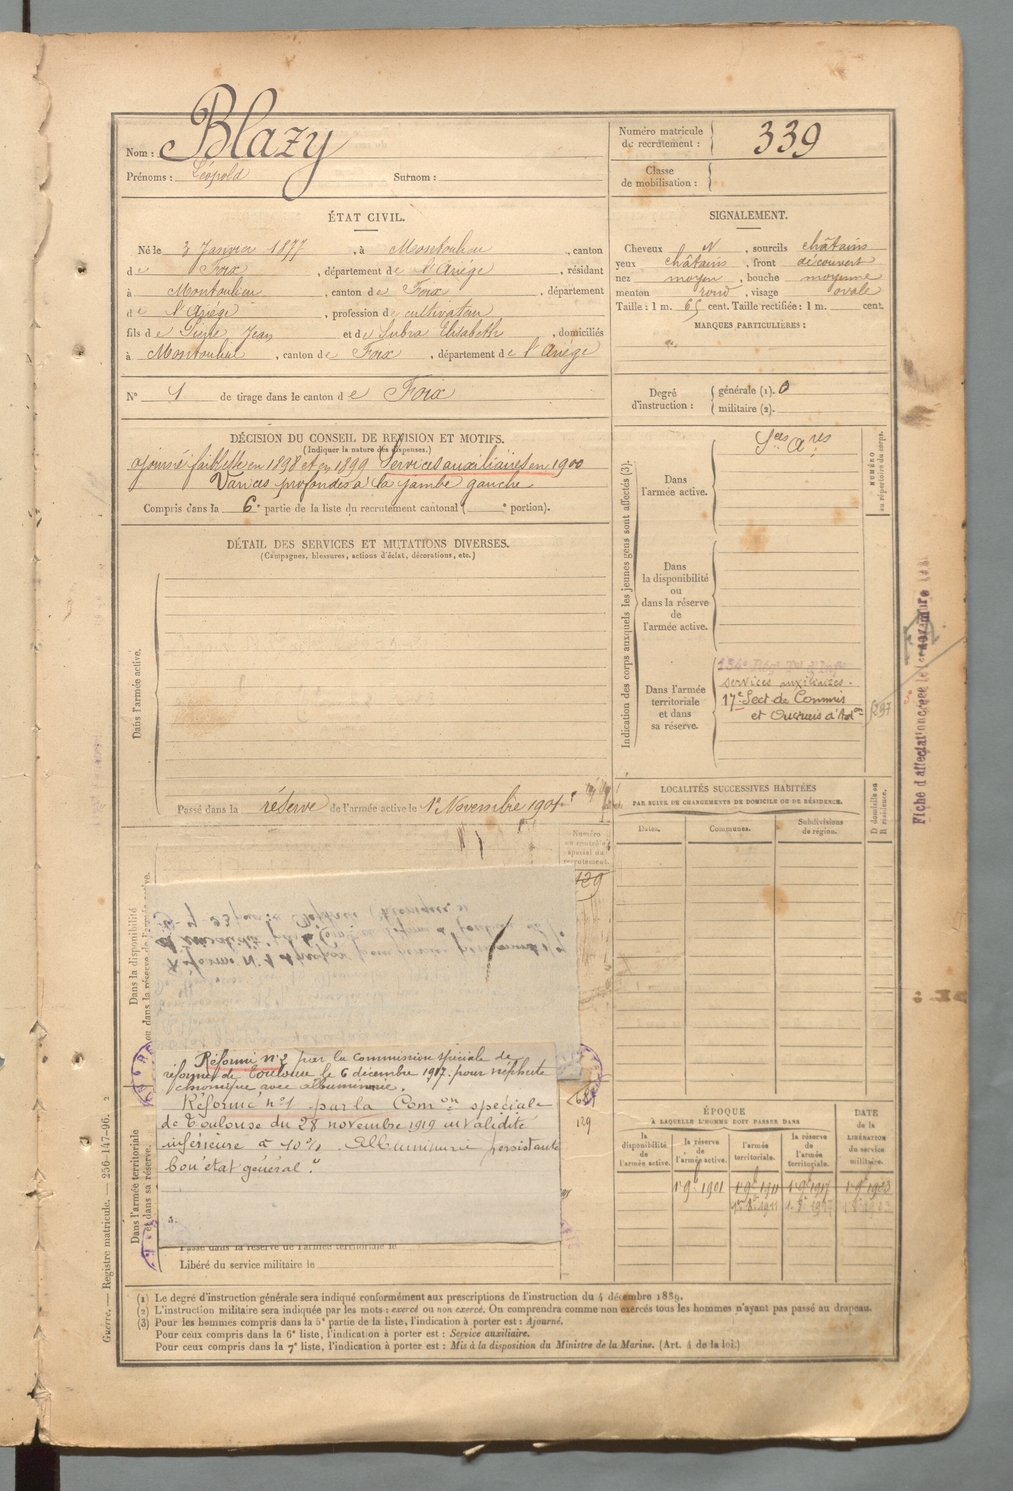 Nom : Blazy
Prénoms : Léopold Surnom :
Numéro matricule de recrutement : 339
Classe de mobilisation :
ÉTAT CIVIL.
Né le 3 Janvier 1877, à Montoulieu, canton
de Foix, département de l'Ariége, résidant
à Montoulieu, canton de Foix, département
de l'Ariége, profession de cultivateur
fils de Jean et de Subra Elisabeth, domiciliés
à Montoulieu, canton de Foix, département de l'Ariége
N° 1 de tirage dans le canton de Foix
SIGNALEMENT.
Cheveux N, sourcils châtains
yeux châtains, front découvert
nez moyen, bouche moyenne
menton rond, visage ovale
Taille : 1 m. 65 cent. Taille rectifiée : 1 m. cent.
MARQUES PARTICULIÈRES :
Degré d'instruction : générale (1). 0
militaire (2).
DÉCISION DU CONSEIL DE REVISION ET MOTIFS.
(Indiquer la nature des dispenses.)
ajourné faiblesse en 1898 et en 1899 Services auxiliaires en 1900
Varices profondes à la jambe gauche
Compris dans la 6e partie de la liste du recrutement cantonal ( e portion).
DÉTAIL DES SERVICES ET MUTATIONS DIVERSES.
(Campagnes, blessures, actions d'éclat, décorations, etc.)
Dans l'armée active.
Passé dans la réserve de l'armée active le 1er Novembre 1901
Indication des corps auxquels les jeunes gens sont affectés (3).
Dans l'armée active.
Sces Ares
NUMÉRO au répertoire du corps.
Dans la disponibilité ou dans la réserve de l'armée active.
Dans l'armée territoriale et dans sa réserve.
services auxiliaires.
17e Sect de Commis
et Ouvriers d'Adon
Fiche d'affectation créée le
LOCALITÉS SUCCESSIVES HABITÉES
PAR SUITE DE CHANGEMENTS DE DOMICILE OU DE RÉSIDENCE.
D domicile ou R résidence.
Dates. Communes. Subdivisions de région.
Numéro au contrôle spécial du recrutement.
129
Dans la disponibilité ou dans la réserve de l'armée active.
Réformé n°2 par la commission spéciale de
réforme de Toulouse le 6 décembre 1917 pour néphrite
chronique avec albuminurie.
Réformé n°1 par la Comon spéciale
de Toulouse du 28 novembre 1919 invalidité
inférieure à 10% Albuminurie persistante
bon état général."
129
Dans l'armée territoriale et dans sa réserve.
Passé dans la réserve de l'armée territoriale le
Libéré du service militaire le
ÉPOQUE
À LAQUELLE L'HOMME DOIT PASSER DANS
la disponibilité de l'armée active.
la réserve de l'armée active.
l'armée territoriale.
la réserve de l'armée territoriale.
DATE de la LIBÉRATION du service militaire.
1er 9bre 1901
(1) Le degré d'instruction générale sera indiqué conformément aux prescriptions de l'instruction du 4 décembre 1889.
(2) L'instruction militaire sera indiquée par les mots : exercé ou non exercé. On comprendra comme non exercés tous les hommes n'ayant pas passé au drapeau.
(3) Pour les hommes compris dans la 5e partie de la liste, l'indication à porter est : Ajourné.
Pour ceux compris dans la 6e liste, l'indication à porter est : Service auxiliaire.
Pour ceux compris dans la 7e liste, l'indication à porter est : Mis à la disposition du Ministre de la Marine. (Art. 4 de la loi.)
Guerre. — Registre matricule. — 256-147-96. 2